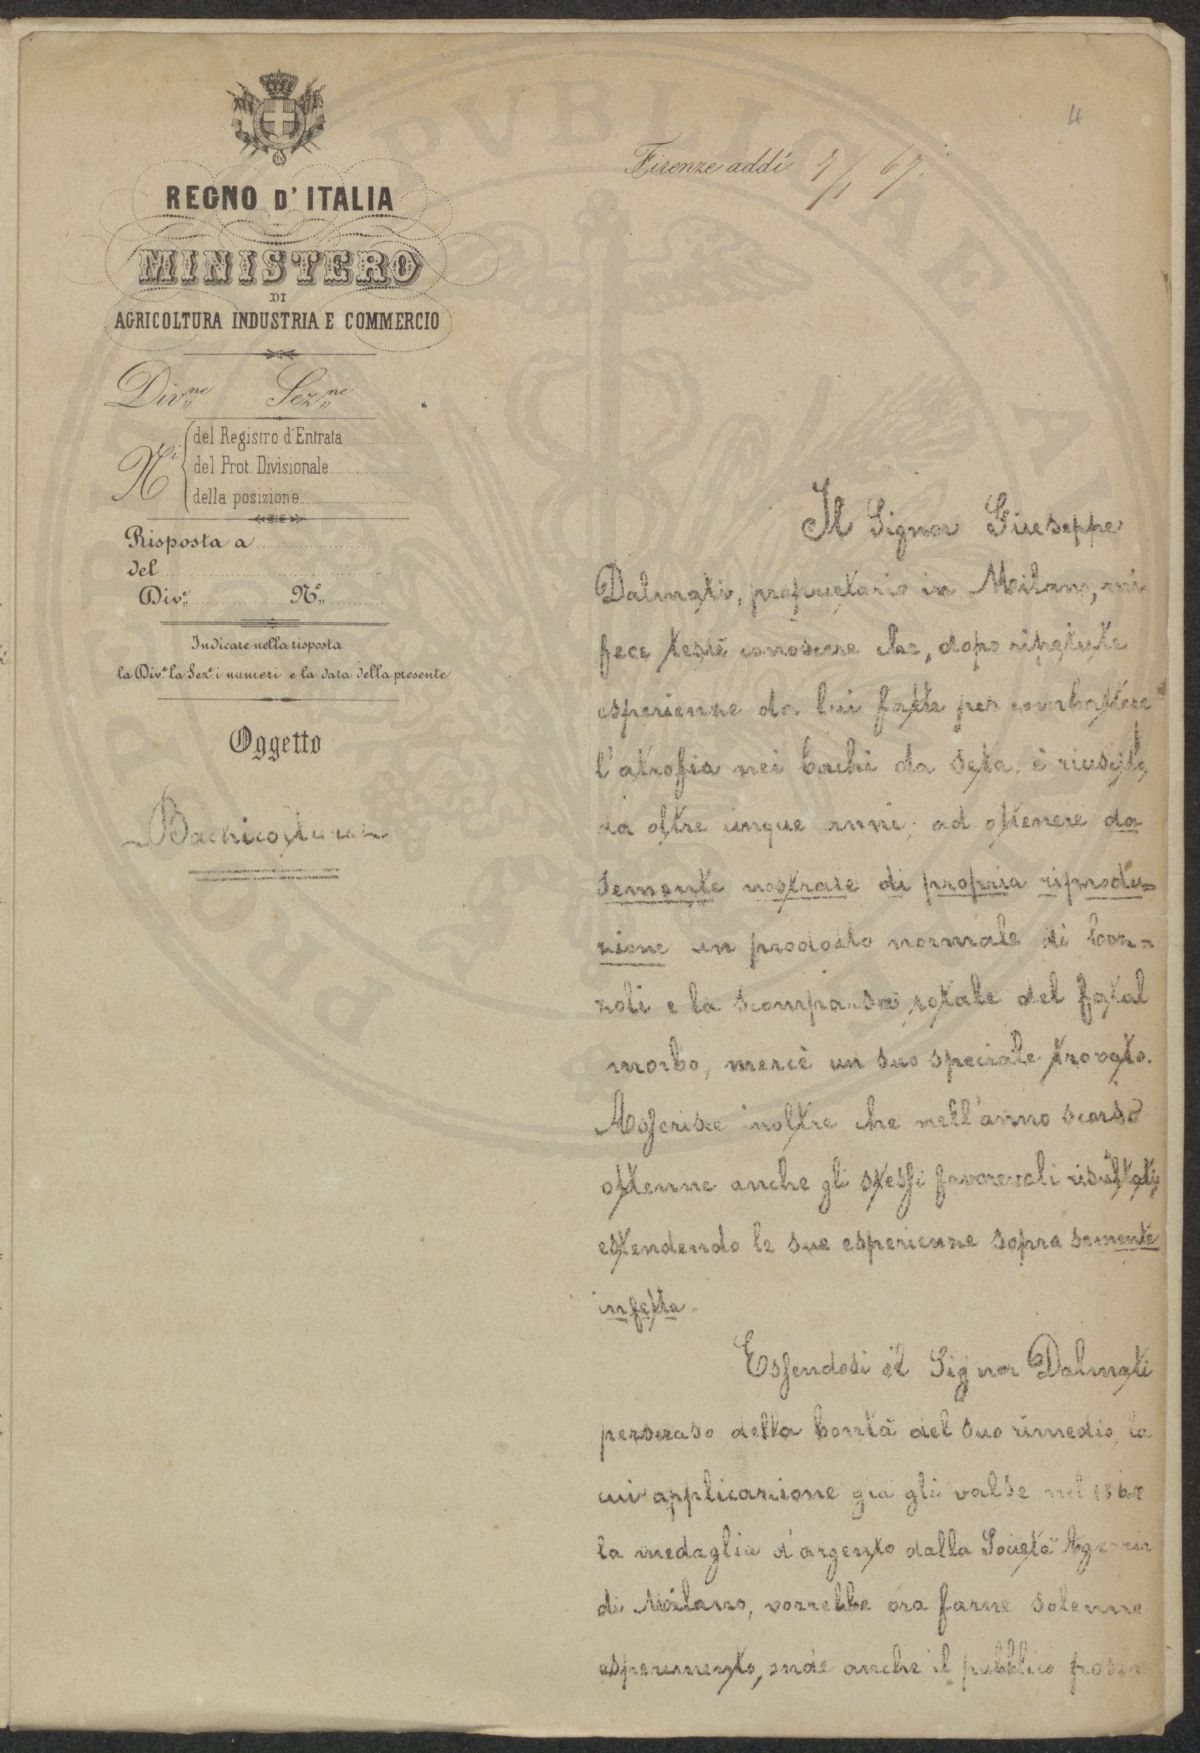 4
Firenze addì 7/1 67.
REGNO D'ITALIA
MINISTERO
DI
AGRICOLTURA INDUSTRIA E COMMERCIO
Div.ne Sez.ne
N.i
del Registro d'Entrata
del Prot. Divisionale
della posizione
Risposta a
del
Div.e N.o
Indicare nella risposta
la Div.e la Sez.e i numeri e la data della presente
Oggetto
Bachicoltura
Il Signor Giuseppe
Dalmati, proprietario in Milano, mi
fece testè conoscere che, dopo ripetute
esperienze da lui fatte per combattere
l'atrofia nei bachi da seta, è riuscito,
da oltre cinque anni, ad ottenere da
semente nostrale di propria riprodu=
zione un prodotto normale di boz=
zoli e la scomparsa totale del fatal
morbo, mercè un suo speciale trovato.
Asserisce inoltre che nell'anno scorso
ottenne anche gli stessi favorevoli risultati
estendendo le sue esperienze sopra semente
infetta.
Essendosi il Signor Dalmati
persuaso della bontà del suo rimedio, la
cui applicazione già gli valse nel
la medaglia d'argento dalla Società Agraria
di Milano, vorrebbe ora farne solenne
esperimento, onde anche il pubblico